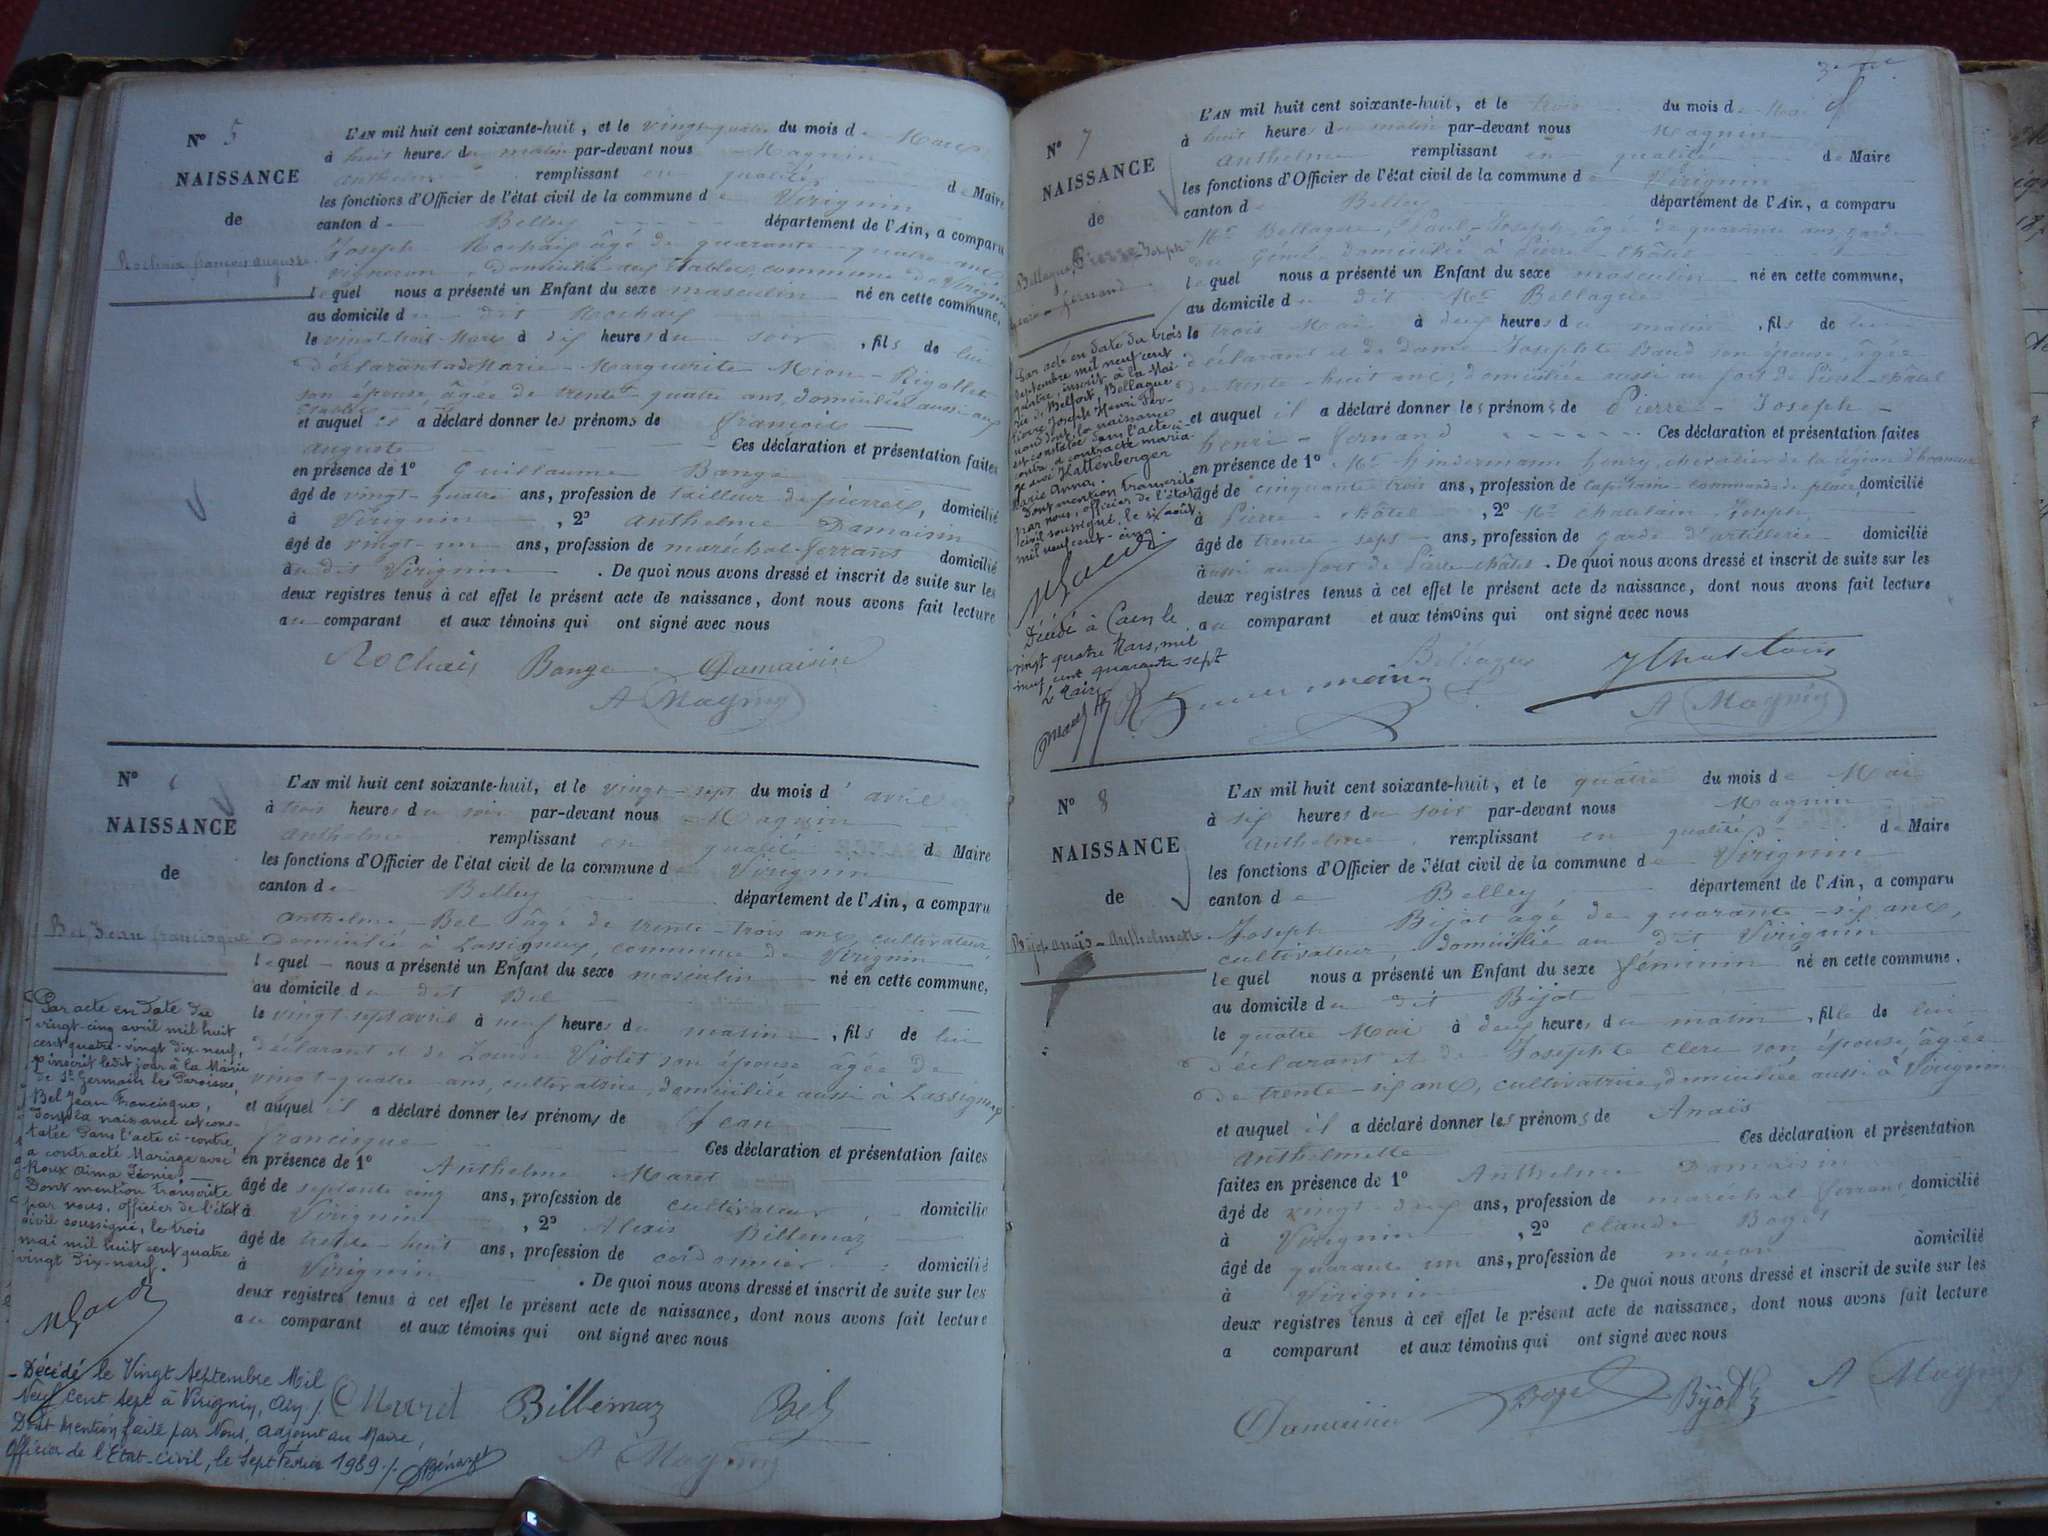 N° 5
NAISSANCE
de
Rochaix françois auguste
L'AN mil huit cent soixante-huit, et le vingt-quatre du mois de Mars
à huit heures du matin par-devant nous Magnin
Anthelme remplissant en qualité de Maire
les fonctions d'Officier de l'état civil de la commune de Virignin
canton de Belley département de l'Ain, a comparu
Joseph Rochaix âgé de quarante-quatre ans
vigneron, domicilié aux Etables, commune de Virignin
lequel nous a présenté un Enfant du sexe masculin né en cette commune,
au domicile du dit Rochaix
le vingt-trois Mars à dix heures du soir, fils de lui
déclarant et de Marie-Marguerite
son épouse, âgée de trente-quatre ans, domiciliée aussi aux
Etables
et auquel il a déclaré donner les prénoms de François
Auguste Ces déclaration et présentation faites
en présence de 1° Guillaume Bange
âgé de vingt-quatre ans, profession de tailleur de pierres, domicilié
à Virignin, 2° Anthelme Damaisin
âgé de vingt-un ans, profession de maréchal-ferrant domicilié
au dit Virignin. De quoi nous avons dressé et inscrit de suite sur les
deux registres tenus à cet effet le présent acte de naissance, dont nous avons fait lecture
au comparant et aux témoins qui ont signé avec nous
Rochaix Bange Damaisin
A Magnin
N° 6
NAISSANCE
de
Bel Jean francisque
L'AN mil huit cent soixante-huit, et le vingt-sept du mois d'avril
à trois heures du soir par-devant nous Magnin
Anthelme remplissant en qualité de Maire
les fonctions d'Officier de l'état civil de la commune de Virignin
canton de Belley département de l'Ain, a comparu
Anthelme Bel âgé de trente-trois ans, cultivateur
domicilié à Lassignieux, commune de Virignin
lequel nous a présenté un Enfant du sexe masculin né en cette commune,
au domicile du dit Bel
le vingt-sept avril à neuf heures du matin, fils de lui
déclarant et de Louise Violet son épouse âgée de
vingt-quatre ans, cultivatrice, domiciliée aussi à Lassignieux
et auquel il a déclaré donner les prénoms de Jean
francisque Ces déclaration et présentation faites
en présence de 1° Anthelme Maret
âgé de septante cinq ans, profession de cultivateur domicilié
à Virignin, 2° Alexis Billemaz
âgé de trente-huit ans, profession de cordonnier domicilié
à Virignin. De quoi nous avons dressé et inscrit de suite sur les
deux registres tenus à cet effet le présent acte de naissance, dont nous avons fait lecture
au comparant et aux témoins qui ont signé avec nous
Maret Billemaz Bel
A Magnin
Par acte en date du
vingt-cinq avril mil huit
cent quatre-vingt dix-neuf,
inscrit ledit jour à la Mairie
de St Germain les Paroisses,
Bel Jean Francisque,
dont la naissance est cons-
tatée dans l'acte ci-contre
a contracté Mariage avec
Roux Aima Léonie.
Dont mention transcrite
par nous, officier de l'état
civil soussigné, le trois
mai mil huit cent quatre
vingt dix-neuf.
- Décédé le Vingt Septembre Mil
Neuf cent sept à Virignin, Ain
Dont mention faite par Nous, Adjoint au Maire,
Officier de l'Etat-civil, le Sept Février 1989
N° 7
NAISSANCE
de
Bellague, Pierre-Joseph
henri-fernand
L'AN mil huit cent soixante-huit, et le trois du mois de Mai
à huit heures du matin par-devant nous Magnin
Anthelme remplissant en qualité de Maire
les fonctions d'Officier de l'état civil de la commune de Virignin
canton de Belley département de l'Ain, a comparu
Mr Bellague, Paul-Joseph âgé de quarante ans, garde
du Génie, domicilié à Pierre-châtel
lequel nous a présenté un Enfant du sexe masculin né en cette commune,
au domicile du dit Mr Bellague
le trois Mai à deux heures du matin, fils de lui
déclarant et de dame Josephte Baud son épouse âgée
de trente-huit ans, domiciliée aussi au fort de Pierre-châtel
et auquel il a déclaré donner les prénoms de Pierre-Joseph-
henri-fernand Ces déclaration et présentation faites
en présence de 1° Mr hindermann henry, chevalier de la légion d'honneur
âgé de cinquante-trois ans, profession de capitaine-command de place, domicilié
à Pierre-châtel, 2° Mr Chatelain Joseph
âgé de trente-sept ans, profession de garde d'artillerie domicilié
aussi au fort de Pierre-châtel. De quoi nous avons dressé et inscrit de suite sur les
deux registres tenus à cet effet le présent acte de naissance, dont nous avons fait lecture
au comparant et aux témoins qui ont signé avec nous
Bellague Chatelain
A Magnin
Par acte en date du trois
septembre mil neuf cent
quatre, inscrit à la Mai-
rie de Belfort, Bellague
Pierre Joseph Henri Fer-
nand dont la naissance
est constatée dans l'acte ci-
contre, a contracté maria-
ge avec Kattenberger
Marie Anna.
Dont mention transcrite
par nous, officier de l'état
civil soussigné, le six août
mil neuf cent-cinq.
Décédé à Caen le
vingt quatre Mars, mil
neuf cent quarante sept
Le Maire
N° 8
NAISSANCE
de
Bijot anaïs-anthelmette
L'AN mil huit cent soixante-huit, et le quatre du mois de Mai
à six heures du soir par-devant nous Magnin
Anthelme remplissant en qualité de Maire
les fonctions d'Officier de l'état civil de la commune de Virignin
canton de Belley département de l'Ain, a comparu
Joseph Bijot âgé de quarante-six ans,
cultivateur, domicilié au dit Virignin
lequel nous a présenté un Enfant du sexe féminin né en cette commune,
au domicile du dit Bijot
le quatre Mai à deux heures du matin, fille de lui
déclarant et de Josephte Clerc son épouse, âgée
de trente-six ans, cultivatrice, domiciliée aussi à Virignin
et auquel il a déclaré donner les prénoms de Anaïs
Anthelmette Ces déclaration et présentation
faites en présence de 1° Anthelme Damaisin
âgé de vingt-deux ans, profession de maréchal-ferrant, domicilié
à Virignin, 2° Claude Boget
âgé de quarante un ans, profession de maçon domicilié
à Virignin. De quoi nous avons dressé et inscrit de suite sur les
deux registres tenus à cet effet le présent acte de naissance, dont nous avons fait lecture
a comparant et aux témoins qui ont signé avec nous
Damaisin Boget Bijot A Magnin